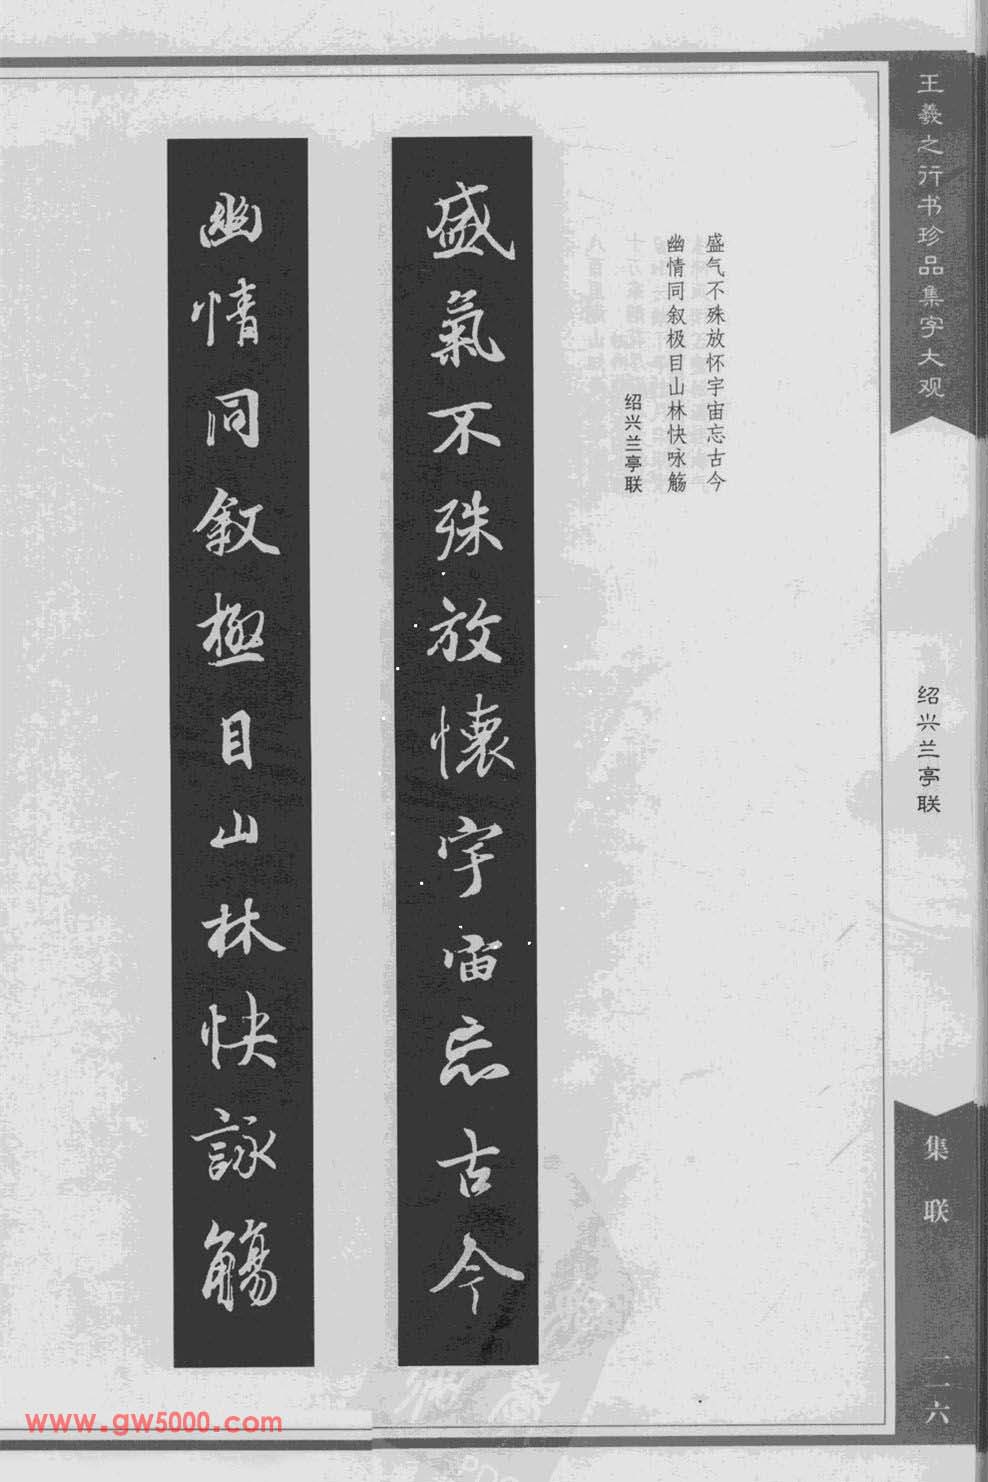 王羲之行书珍品集字大观
绍兴兰亭联
集联
一一六
盛气不殊放怀宇宙忘古今
幽情同叙极目山林快咏觞
绍兴兰亭联
盛氣不殊放懷宇宙忘古今
幽情同敘極目山林快詠觴
www.gw5000.com